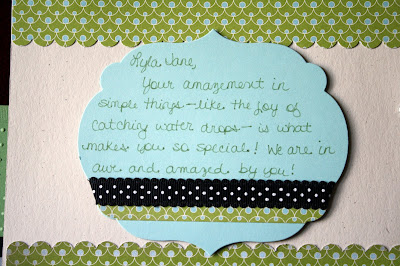 Kyla Jane,
Your amazement in
simple things—like the joy of
catching water drops—is what
makes you so special! We are in
awe and amazed by you!